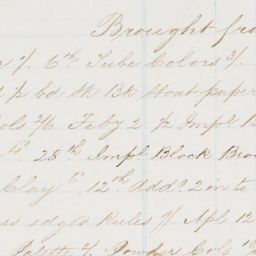 Brought fro
7/. 6th Tube Colors 3/.
bd Sk Bk Stout paper
ols 2/6 Feby 2 Impl B
4d 28th Impl Block Bro
Clay 6d. 12th Addl. 2m to
edged Rules 9/ Apl 12
Palette 2/ Powder Cols